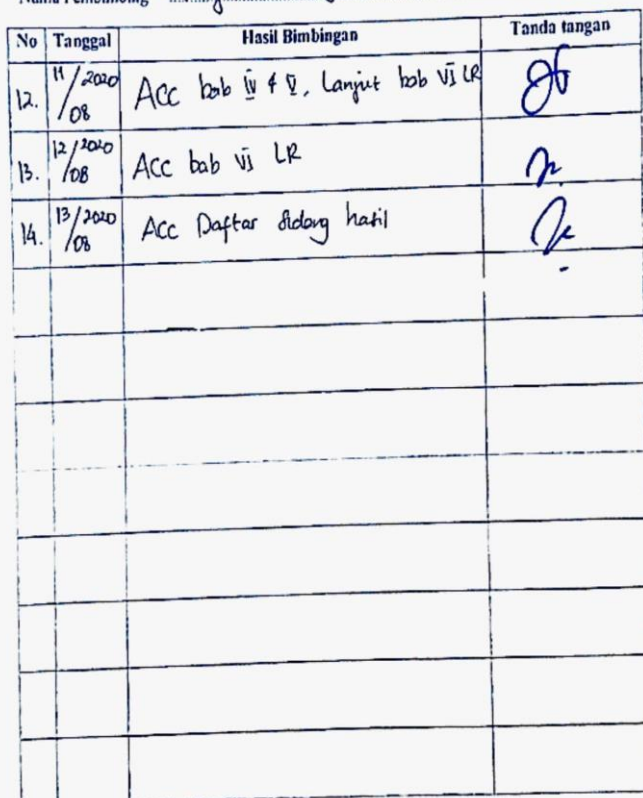 No Tanggal Hasil Bimbingan Tanda tangan
12. 11/2020 /08 Acc bab IV & V, Lanjut bab VI LR
13. 12/2020 /08 Acc bab VI LR
14. 13/2020 /08 Acc Daftar sidang hasil